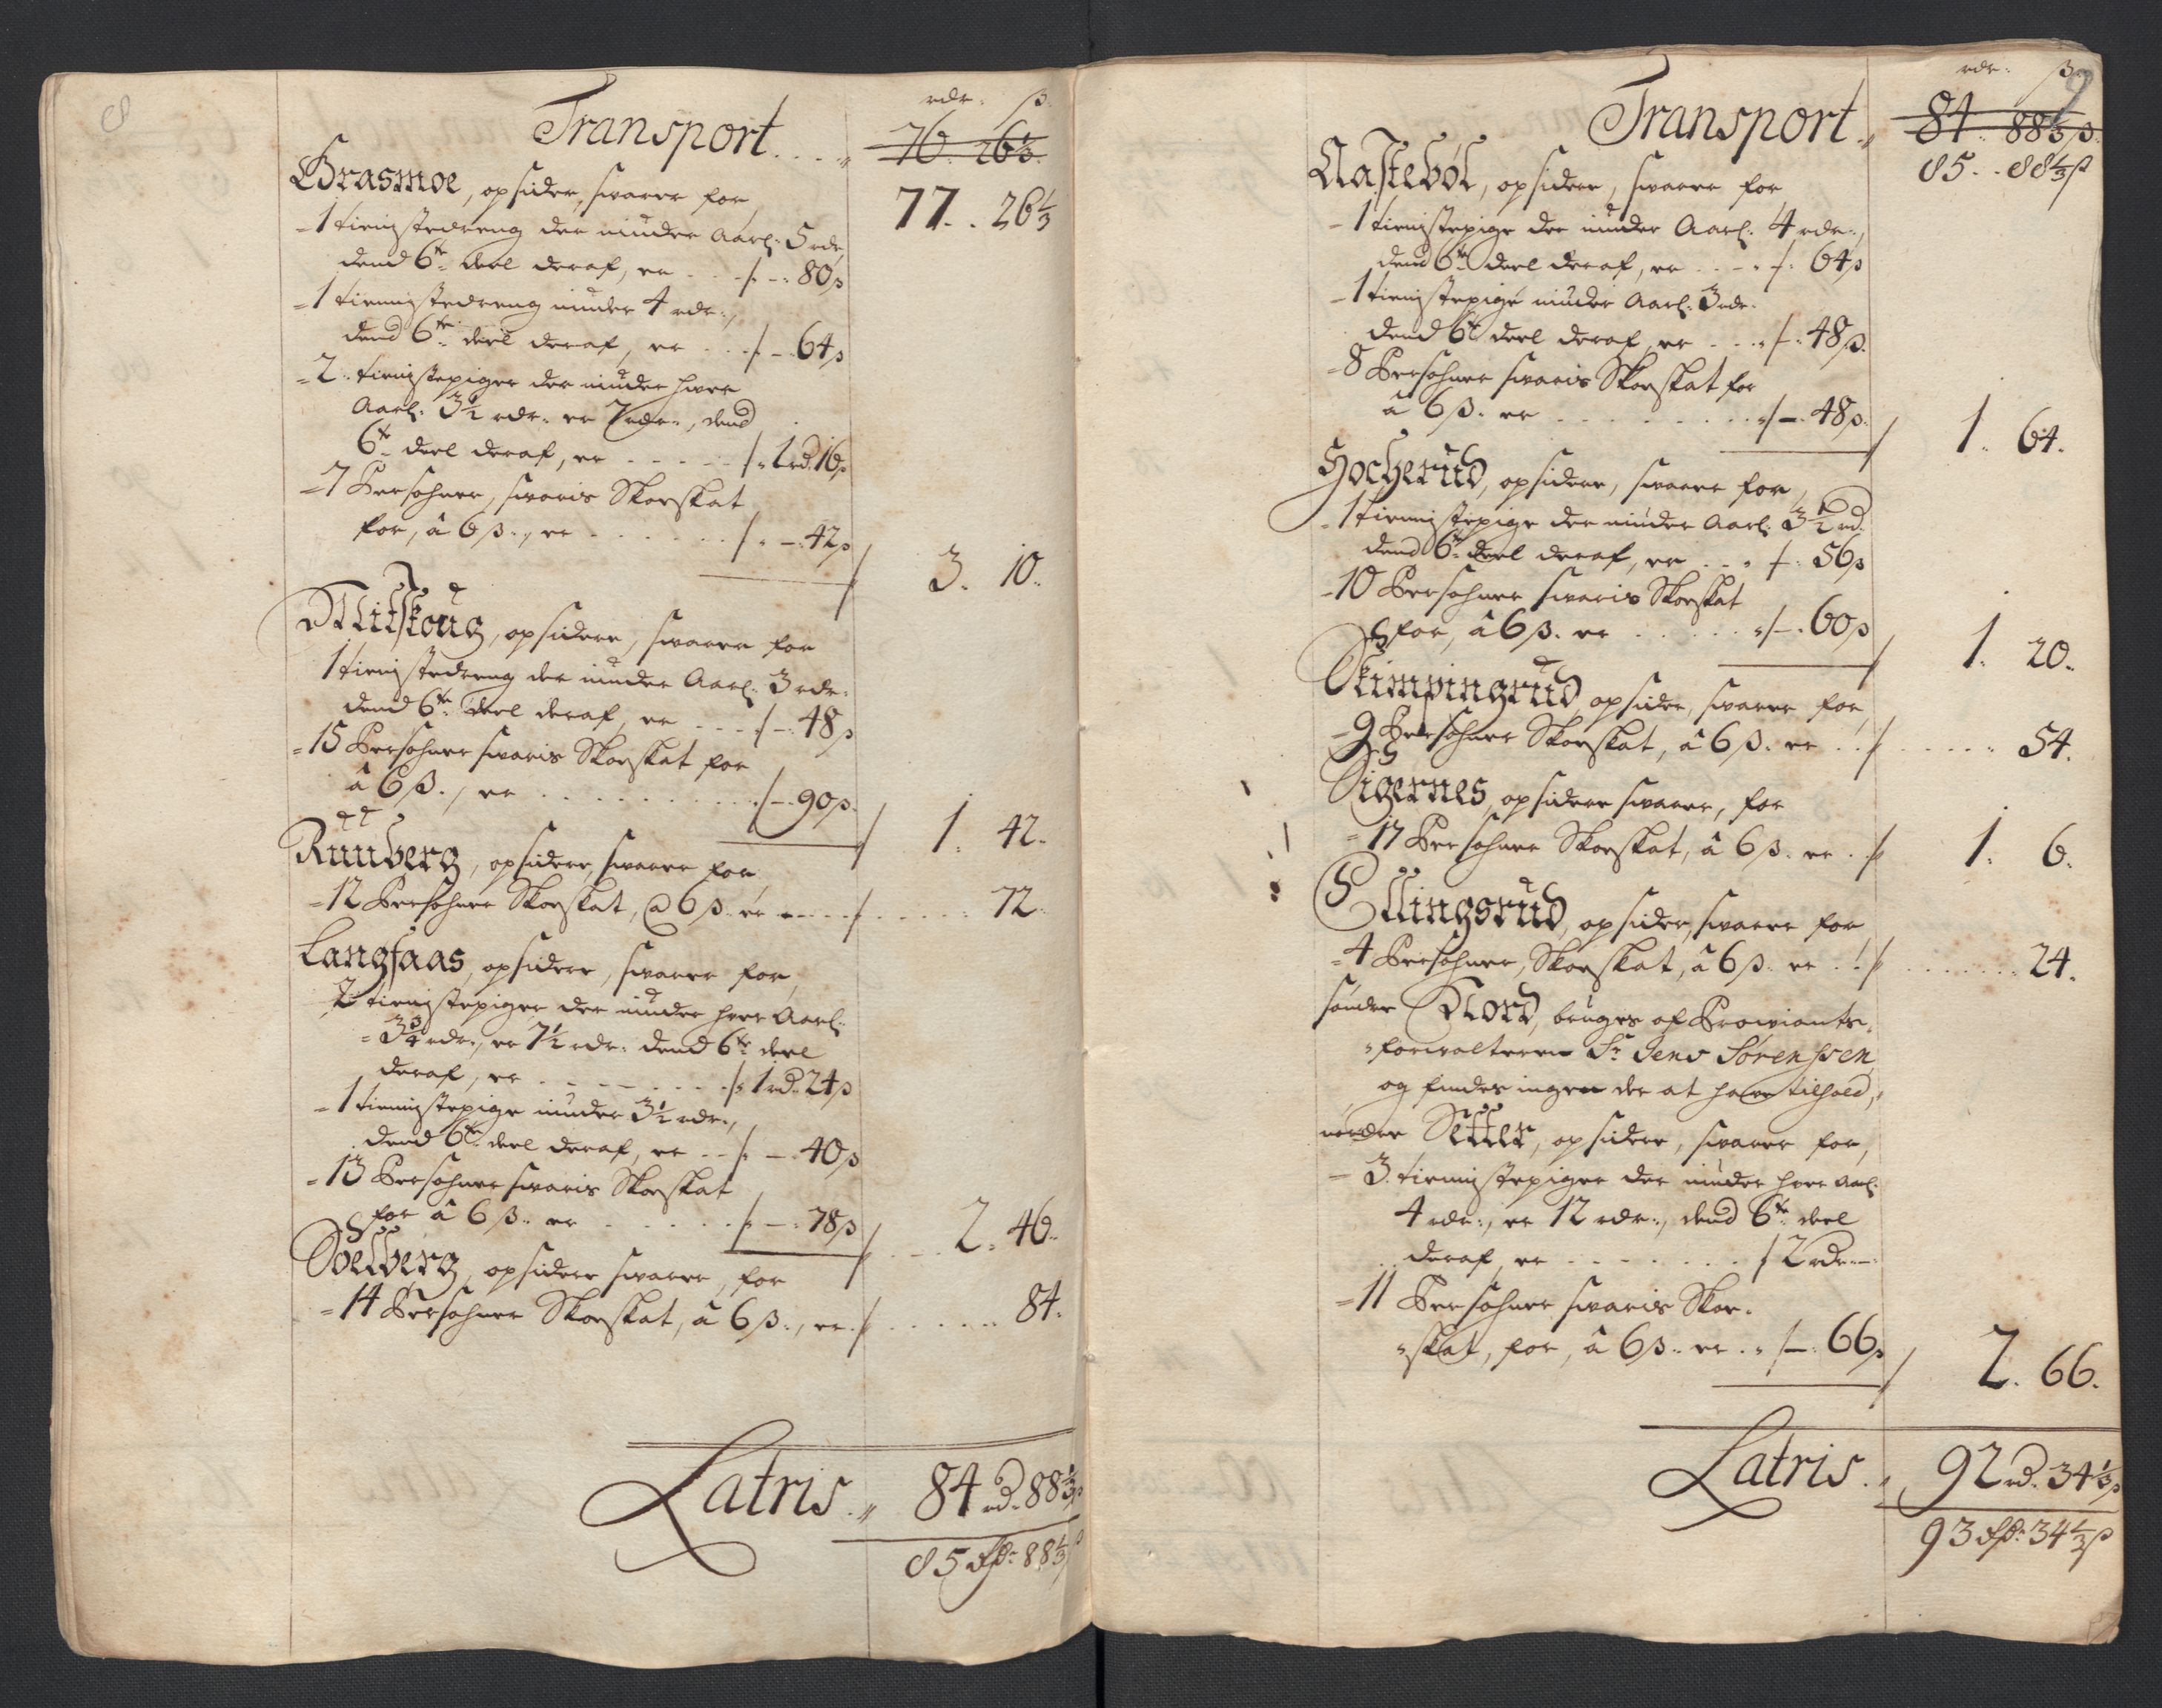 8
rdr: ß
Transport .... 76. 26⅓.
77.. 26⅓
Grasmoe, opsider, svarer for
- 1 tienistedreng der niuder Aarl: 5 rdr,
dend 6te deel deraf, er ... /. - : 80 ß
- 1 tiennistedreng niuder 4 rdr:,
dend 6te deel deraf, er ... /. - . 64 ß
- 2: tienistepiger der niuder hver
Aarl: 3½ rdr: er 7 rdr:, dend
6te deel deraf, er ..... /. 1 rd. 16 ß
- 7 Persohner, svaris Skoeskat
for, â 6 ß:, er ...... /. - . 42 ß
3. 10.
Mitskoug, opsidere, svarer for
1 tienistedreng der niuder Aarl: 3 rdr:
dend 6te deel deraf, er ... /. - . 48 ß
- 15 Persohner svaris Skoeskat for
â 6 ß., er .......... /. - . 90 ß.
1. 42.
Ruuberg, opsider, svarer for,
- 12 Persohner Skoeskat, â 6 ß. er ..... / ...... 72.
Langfaas, opsidere, svarer for,
2 tienistepiger der niuder hver Aarl:
- 3¾ rdr:, er 7½ rdr: dend 6te deel
deraf, er ........ /. 1 rd. 24 ß
- 1 tienistepige niuder 3½ rdr:,
dend 6te deel deraf, er .. /. - . 40 ß
- 13 Persohner svaris Skoeskat
for â 6 ß. er ...... /. - : 78 ß
2. 46.
Søelberg, opsidere svarer, for
- 14 Persohner Skoeskat, â 6 ß:, er. / ...... 84.
Latris.. 84 rd. 88⅓ ß
85 rdr. 88⅓ ß
9
rdr: ß
Transport.. 84. 88⅓ ß.
85.. 88⅓ ß
Aastebøl, opsidere, svarer for
- 1 tienistepige der niuder Aarl: 4 rdr:,
dend 6te deel deraf, er ... /. 64 ß
- 1 tienistepige niuder Aarl: 3 rdr.
dend 6te deel deraf, er ... /. 48 ß.
- 8 Persohner svaris Skoeskat for
â 6 ß. er .......... /. - . 48 ß.
1. 64.
Hocherud, opsidere, svarer for,
- 1 tiennistepige der niuder Aarl: 3½ rd.
dend 6te deel deraf, er ... /. 56 ß
- 10 Persohner svaris Skoeskat
for, â 6 ß. er ...... /. - . 60 ß
1. 20.
Skimpingrud, opsider, svarer for,
- 9 Persohner Skoeskat, â 6 ß. er .. / ..... 54.
Sigernes, opsidere svarer, for
- 17 Persohner Skoeskat, â 6 ß. er .. / 1. 6.
Ellingsrud, opsider, svarer for
- 4 Persohner, Skoeskat, â 6 ß. er .. / ...... 24.
sønder Nord, bruges af Proviants-
forvalteren Sr Jens Sørenssen,
og findes ingen der at have tilhold,
nordre Setter, opsidere, svarer for,
- 3. tiennistepiger der niuder hver Aarl:
4 rdr:, er 12 rdr:, dend 6te deel
deraf, er ....... / 2 rdr - :
- 11 Persohner svaris Skoe-
skat, for, â 6 ß. er .. /. - . 66 ß
2. 66.
Latris.. 92 rd. 34⅓ ß
93 rdr. 34⅓ ß